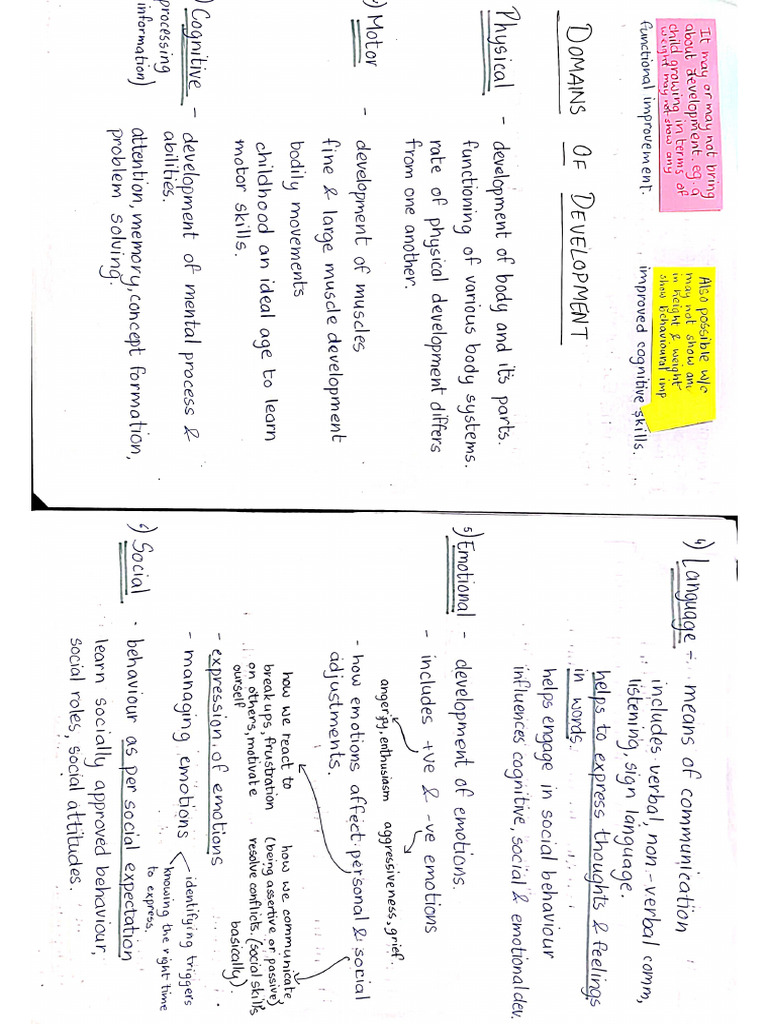 It may or may not bring
about development. eg. a
child growing in terms of
weight may not show any
functional improvement.
Also possible w/o
may not show any
in height & weight
show behavioural imp
improved cognitive skills.
DOMAINS OF DEVELOPMENT
Physical - development of body and its parts.
functioning of various body systems.
rate of physical development differs
from one another.
2) Motor - development of muscles
fine & large muscle development
bodily movements
childhood an ideal age to learn
motor skills.
) Cognitive - development of mental process &
(processing abilities.
information) attention, memory, concept formation,
problem solving.
4) Language - means of communication
includes verbal, non-verbal comm,
listening, sign language.
helps to express thoughts & feelings
in words.
helps engage in social behaviour
influences cognitive, social & emotional dev.
5) Emotional - development of emotions.
- includes +ve & -ve emotions
anger, joy, enthusiasm aggressiveness, grief.
- how emotions affect personal & social
adjustments.
how we react to
break ups, frustration
on others, motivate
ourself
how we communicate
(being assertive or passive)
resolve conflicts. (social skills
basically).
- expression of emotions
- managing emotions
identifying triggers
knowing the right time
to express.
6) Social - behaviour as per social expectation
learn socially approved behaviour,
social roles, social attitudes.